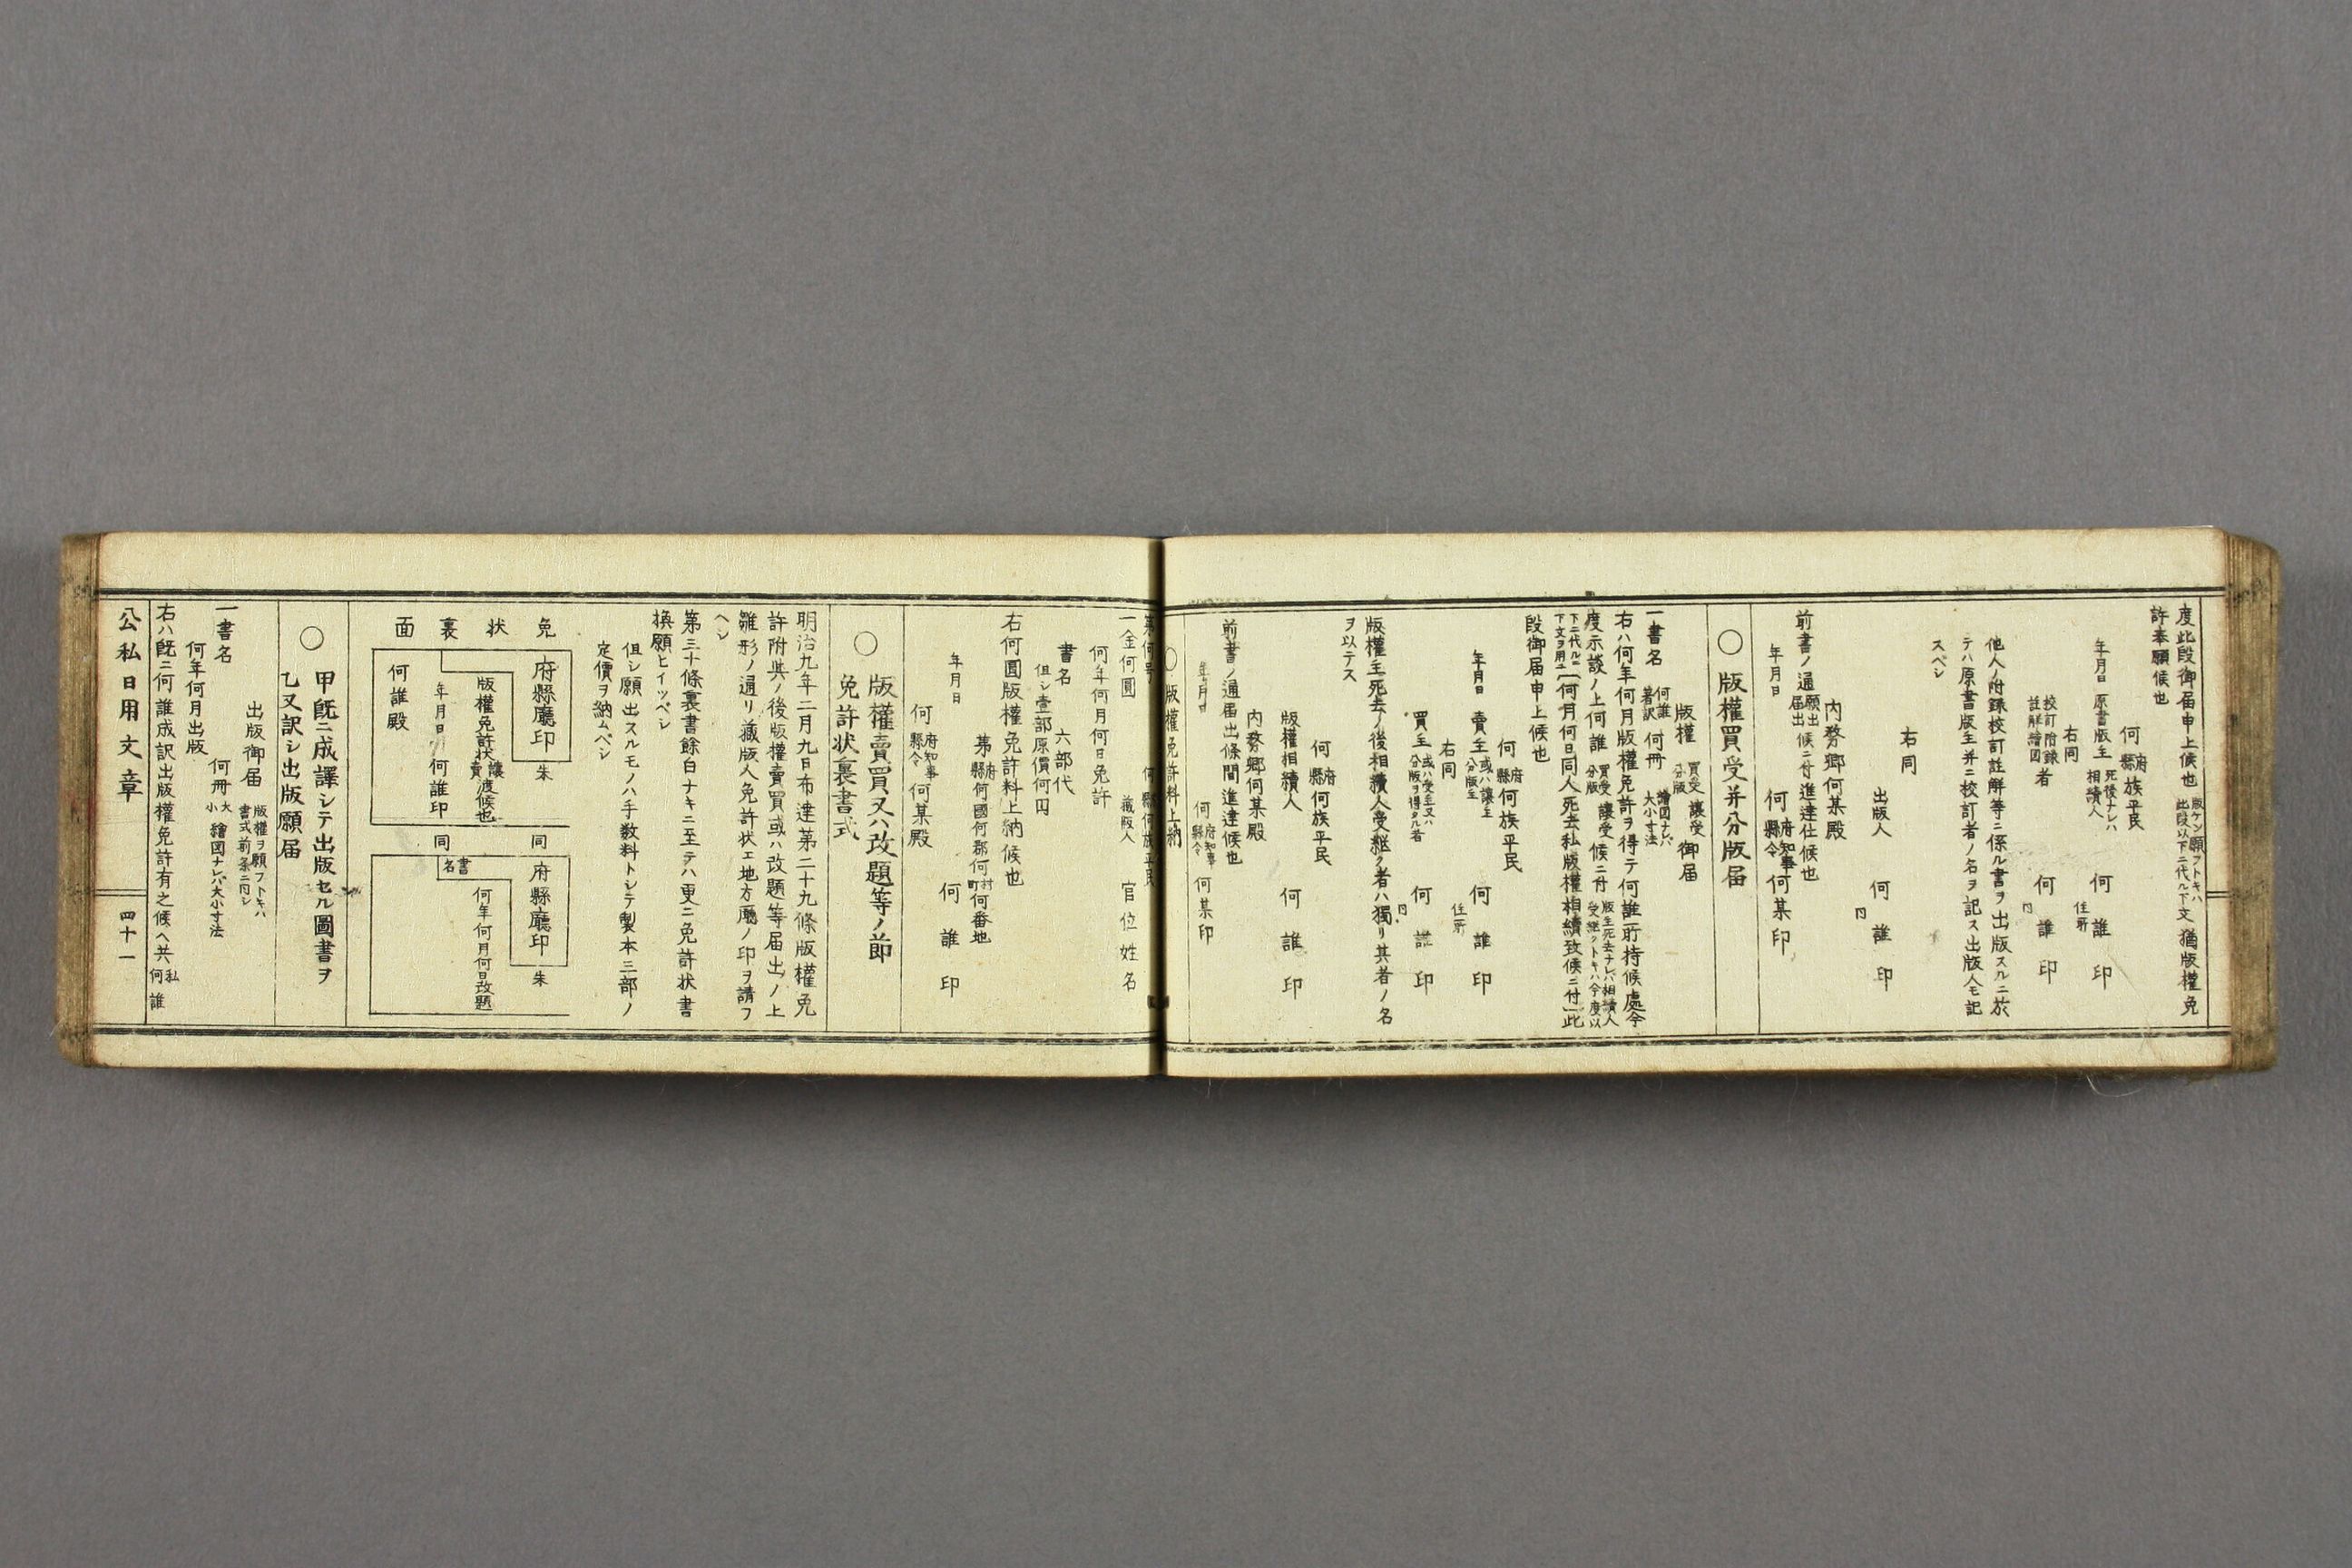 度此段御届申上候也 版ケン願フトキハ此段以下ニ代ル下文 猶版權免
許奉願候也
何府縣族平民
年月日 原書版主 死後ナレハ相續人 何誰 印
住所
右同
校訂附録註解繪図者 何誰 印
同
他人ノ附録校訂註解等ニ係ル書ヲ出版スルニ於
テハ原書版主并ニ校訂者ノ名ヲ記ス出版人モ記
スベシ
右同
出版人 何誰 印
同
内務卿何某殿
前書ノ通願出届出候ニ付進達仕候也
年月日 何府知事縣令何某 印
○版權買受并分版届
版權 買受分版 讓受 御届
一書名 何誰著訳 何冊 繪図ナレバ大小寸法
右ハ何年何月版權免許ヲ得テ何誰所持候處今
度示談ノ上何誰 買受分版 讓受 候ニ付 版主死去ナレバ相續人受継クトキハ今度以
下ニ代ルニ下文ヲ用ユ 何月何日同人死去私版權相續致候ニ付 此
段御届申上候也
何府縣何族平民
年月日 賣主 或ハ讓主分版主 何誰 印
住所
右同
買主 或ハ受主又ハ分版ヲ得タル者 何誰 印
同
版權主死去ノ後相續人受継ク者ハ獨リ其者ノ名
ヲ以テス
何府縣何族平民
版權相續人 何誰 印
内務卿何某殿
前書ノ通届出候間進達候也
年月日 何府知事縣令 何某 印
○版權免許料上納
第何号 何縣何族平民
一金何圓 藏版人 官位姓名
何年何月何日免許
書名 六部代
但シ壹部原價何円
右何圓版權免許料上納候也
第何府縣何國何郡何村町何番地
年月日 何誰 印
何府知事縣令 何某殿
○版權賣買又ハ改題等ノ節
免許状裏書式
明治九年二月九日布達第二十九條版權免
許附與ノ後版權賣買或ハ改題等届出ノ上
雛形ノ通リ藏版人免許状エ地方廳ノ印ヲ請フ
ヘシ
第三十條裏書餘白ナキニ至テハ更ニ免許状書
換願ヒイツベシ
但シ願出スルモノハ手数料トシテ製本三部ノ
定價ヲ納ムベシ
免状裏面
府縣廳印 朱
版權免許状讓賣渡候也
年月日 何誰印
何誰殿
同 同
府縣廳印 朱
書名
何年何月何日改題
○甲既ニ成譯シテ出版セル圖書ヲ
乙又訳シ出版願届
出版御届 版權ヲ願フトキハ書式前条ニ同シ
一書名 何冊 大小 繪図ナレバ大小寸法
何年何月出版
右ハ既ニ何誰成訳出版權免許有之候ヘ共 私何誰
公私日用文章 四十一